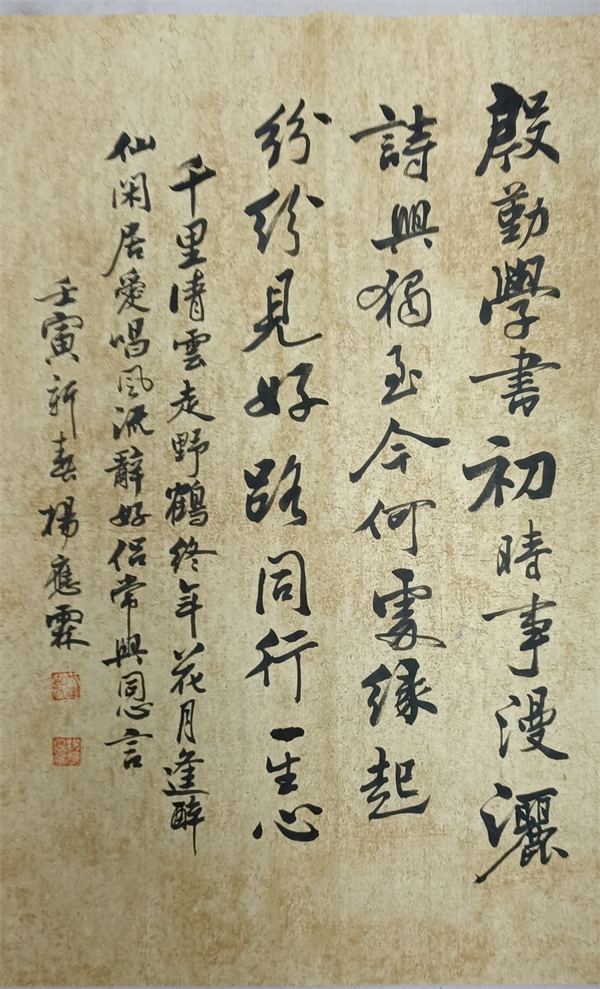 殷勤學書初時事漫灑
詩興獨至今何處緣起
紛紛見好路同行一生心
千里清雲走野鶴終年花月逢醉
仙閑居愛唱風流辭好侶常興同心言
壬寅新春楊應霖